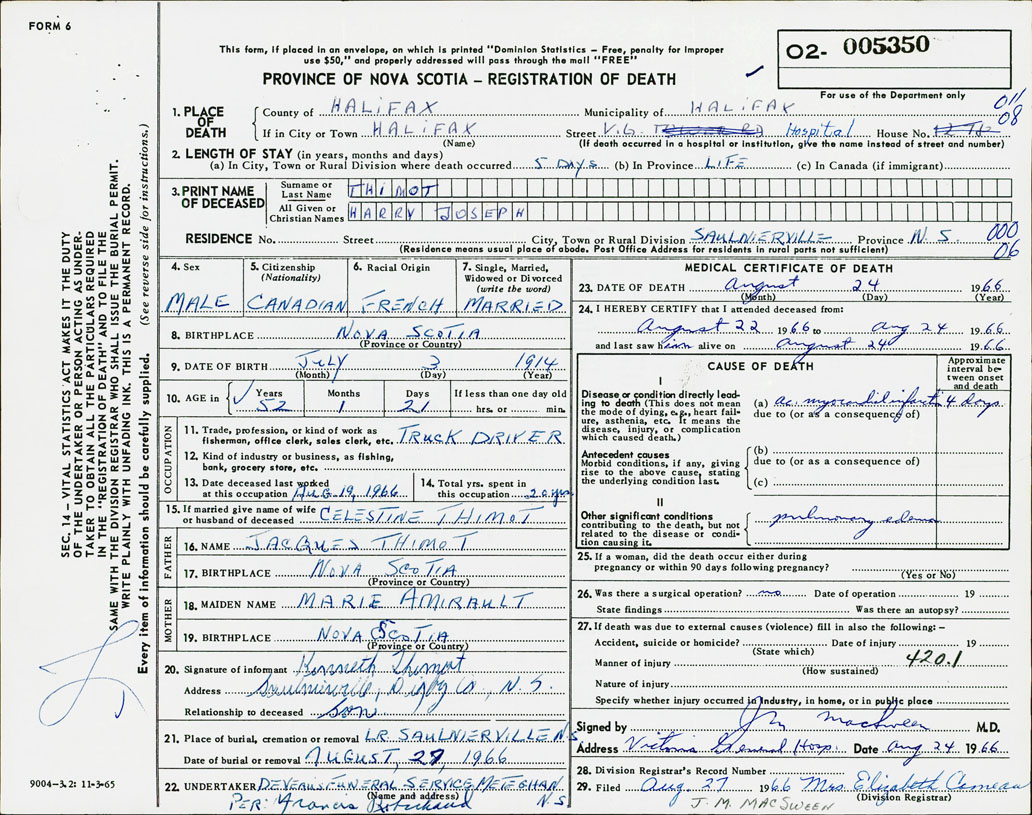 FORM 6
This form, if placed in an envelope, on which is printed "Dominion Statistics – Free, penalty for improper
use $50," and properly addressed will pass through the mail "FREE"
PROVINCE OF NOVA SCOTIA – REGISTRATION OF DEATH
O2- 005350
For use of the Department only
011
08
1. PLACE OF DEATH
County of HALIFAX Municipality of HALIFAX
If in City or Town HALIFAX Street V.G. Hospital House No.
(Name) (If death occurred in a hospital or institution, give the name instead of street and number)
2. LENGTH OF STAY (in years, months and days)
(a) In City, Town or Rural Division where death occurred 5 DAYS (b) In Province LIFE (c) In Canada (if immigrant)
3. PRINT NAME OF DECEASED
Surname or Last Name THIMOT
All Given or Christian Names HARRY JOSEPH
RESIDENCE No. Street City, Town or Rural Division SAULNIERVILLE Province N.S. 000
(Residence means usual place of abode. Post Office Address for residents in rural parts not sufficient) 06
4. Sex MALE
5. Citizenship (Nationality) CANADIAN
6. Racial Origin FRENCH
7. Single, Married, Widowed or Divorced (write the word) MARRIED
8. BIRTHPLACE NOVA SCOTIA
(Province or Country)
9. DATE OF BIRTH JULY 3 1914
(Month) (Day) (Year)
10. AGE in Years Months Days If less than one day old
52 1 21 hrs. or min.
OCCUPATION
11. Trade, profession, or kind of work as
fisherman, office clerk, sales clerk, etc. TRUCK DRIVER
12. Kind of industry or business, as fishing,
bank, grocery store, etc.
13. Date deceased last worked
at this occupation AUG 19, 1966
14. Total yrs. spent in
this occupation 20 yrs
15. If married give name of wife
or husband of deceased CELESTINE THIMOT
FATHER
16. NAME JACQUES THIMOT
17. BIRTHPLACE NOVA SCOTIA
(Province or Country)
MOTHER
18. MAIDEN NAME MARIE AMIRAULT
19. BIRTHPLACE NOVA SCOTIA
(Province or Country)
20. Signature of informant Kenneth Thimot
Address Saulnierville, Digby Co., N.S.
Relationship to deceased son
21. Place of burial, cremation or removal LR. SAULNIERVILLE N.S
Date of burial or removal AUGUST, 27, 1966
22. UNDERTAKER DEVEAU FUNERAL SERVICE METEGHAN
(Name and address) N S
PER: Francis Robichaud
MEDICAL CERTIFICATE OF DEATH
23. DATE OF DEATH August 24 1966
(Month) (Day) (Year)
24. I HEREBY CERTIFY that I attended deceased from:
August 22 1966 to Aug 24 1966
and last saw him alive on August 24 1966
CAUSE OF DEATH
Approximate interval between onset and death
I
Disease or condition directly lead-
ing to death (This does not mean
the mode of dying, e.g., heart fail-
ure, asthenia, etc. It means the
disease, injury, or complication
which caused death.)
(a) ac. myocardial infarct 4 days
due to (or as a consequence of)
Antecedent causes
Morbid conditions, if any, giving
rise to the above cause, stating
the underlying condition last.
(b)
due to (or as a consequence of)
(c)
II
Other significant conditions
contributing to the death, but not
related to the disease or condi-
tion causing it.
pulmonary edema
25. If a woman, did the death occur either during
pregnancy or within 90 days following pregnancy?
(Yes or No)
26. Was there a surgical operation? no Date of operation 19
State findings Was there an autopsy?
27. If death was due to external causes (violence) fill in also the following: –
Accident, suicide or homicide? Date of injury 19
(State which)
Manner of injury 420.1
(How sustained)
Nature of injury
Specify whether injury occurred in industry, in home, or in public place
Signed by J M MacSween M.D.
Address Victoria General Hosp. Date Aug 24 1966
28. Division Registrar's Record Number
29. Filed Aug. 27 1966 Mrs Elizabeth Comeau
(Division Registrar)
J. M. MACSWEEN
SEC. 14 – VITAL STATISTICS ACT MAKES IT THE DUTY
OF THE UNDERTAKER OR PERSON ACTING AS UNDER-
TAKER TO OBTAIN ALL THE PARTICULARS REQUIRED
IN THE "REGISTRATION OF DEATH" AND TO FILE THE
SAME WITH THE DIVISION REGISTRAR WHO SHALL ISSUE THE BURIAL PERMIT.
WRITE PLAINLY WITH UNFADING INK. THIS IS A PERMANENT RECORD.
Every item of information should be carefully supplied. (See reverse side for instructions.)
9004–3.2: 11-3-65